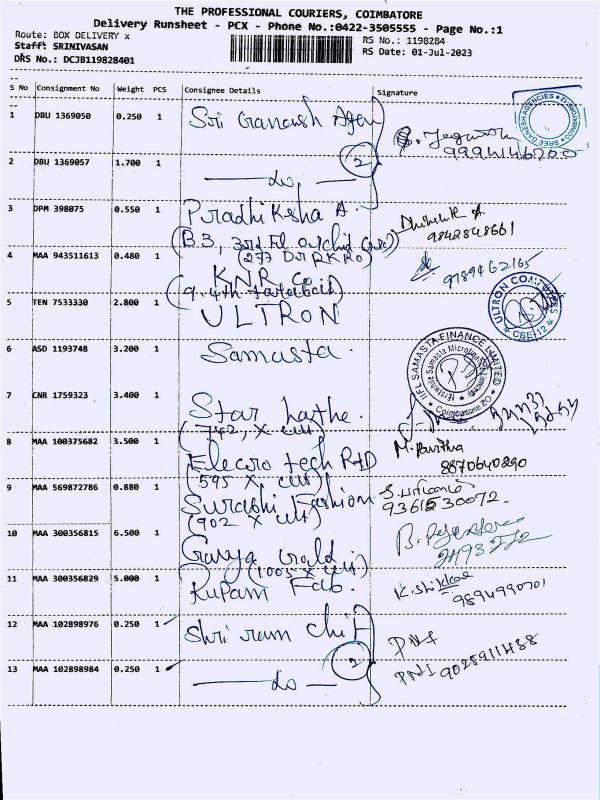 THE PROFESSIONAL COURIERS, COIMBATORE
Delivery Runsheet - PCX - Phone No.:0422-3505555 - Page No.:1
Route: BOX DELIVERY x
RS No.: 1198284
Staff: SRINIVASAN
RS Date: 01-Jul-2023
DRS No.: DCJB119828401
S No Consignment No Weight PCS Consignee Details Signature
1 DBU 1369050 0.250 1 Sri Ganesh Agen
SREE GANESH AGENCIES
2 DBU 1369057 1.700 1 — do — 2
3 DPM 398075 0.550 1 Pradhiksha A.
9842848661
(B3, 3rd Fl. orchid
4 MAA 943511613 0.480 1 KNR Co
9789462165
5 TEN 7533330 2.800 1 ULTRON
ULTRON COMPUTERS CBE-12
6 ASD 1193748 3.200 1 Samasta.
IIFL SAMASTA FINANCE LIMITED
(Erstwhile Samasta Microfinance Limited)
Coimbatore 02
7 CNR 1759323 3.400 1 Star Lathe.
(742, X cut)
8 MAA 100375682 3.500 1 Elecro tech R&D
M. Pavitha
8870640290
(595 X cut)
9 MAA 569872786 0.880 1 Surabhi Fashion
9361530072.
(902 X cut)
10 MAA 300356815 6.500 1
(1005 X cut)
11 MAA 300356829 5.000 1 Rupam Fab.
9894990701
12 MAA 102898976 0.250 1 Shri ram chit
PNS
13 MAA 102898984 0.250 1 — do — 2
PNS 9025911488